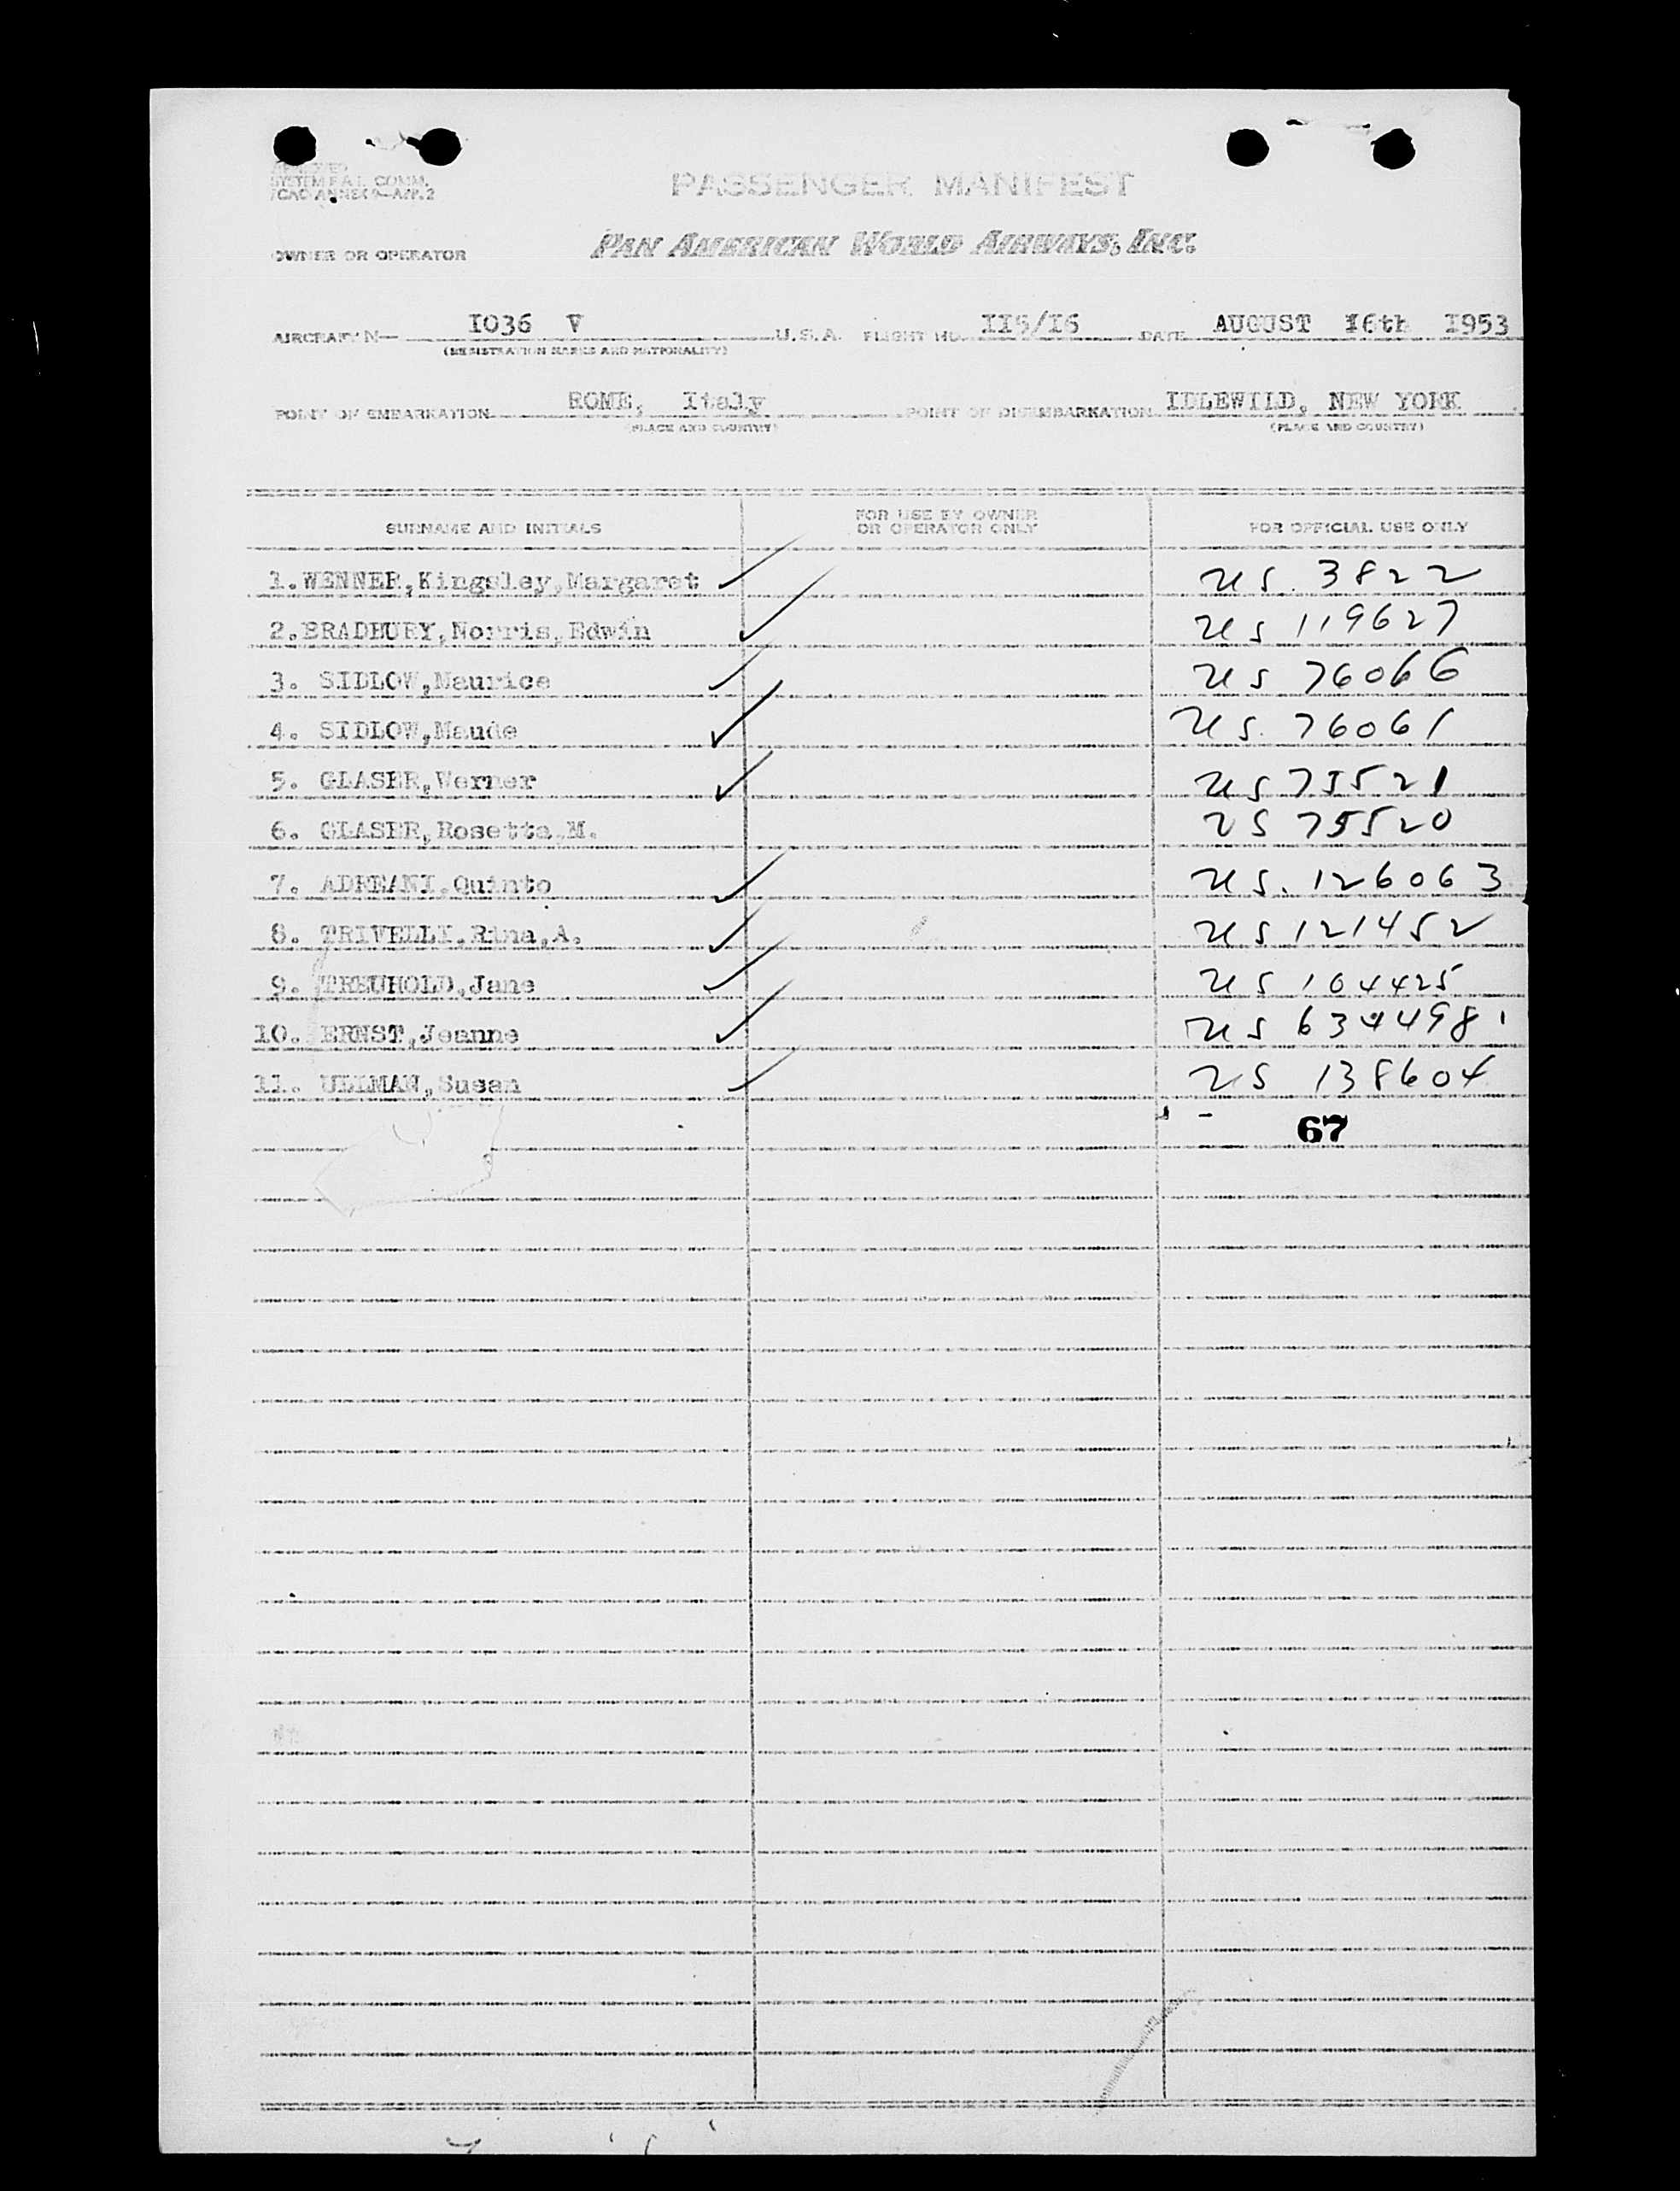 SYSTEM F.A.L. COMM.
ICAO ANNEX 9—APP.2
PASSENGER MANIFEST
OWNER OR OPERATOR PAN AMERICAN WORLD AIRWAYS, INC.
AIRCRAFT N— I036 V U.S.A. FLIGHT NO. II5/I6 DATE AUGUST I6th I953
(REGISTRATION MARKS AND NATIONALITY)
POINT OF EMBARKATION ROME, Italy POINT OF DISEMBARKATION IDLEWILD, NEW YORK
(PLACE AND COUNTRY) (PLACE AND COUNTRY)
SURNAME AND INITIALS FOR USE BY OWNER OR OPERATOR ONLY FOR OFFICIAL USE ONLY
1.WENNER,Kingsley,Margaret US. 3822
2.BRADBURY,Norris,Edwin US 119627
3. SIDLOW,Maurice US 76066
4. SIDLOW,Maude US. 76061
5. GLASER,Werner US 75521
6. GLASER,Rosetta M. US 75520
7. ADREANI.Quinto US. 126063
8. TRIVELLI.Rina,A. US 121452
9. TREUHOLD,Jane US 104425
10. ERNST,Jeanne US 634498
11. ULLMAN,Susan US 138604
67